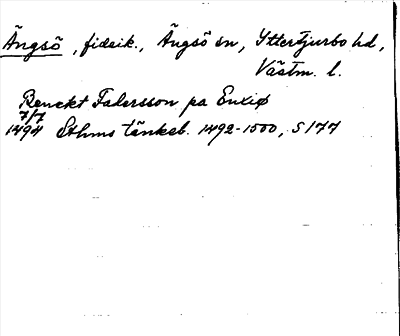 Ängsö, fideik., Ängsö sn, Yttertjurbo hd,
Västm. l.
Benckt Falersson pa Enxiø
7/7
1494 Sthms tänkeb. 1492-1500, S 177